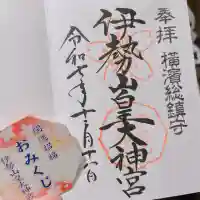 奉拝 横濱総鎮守
伊勢山皇大神宮
令和七年十二月十一日
開運招福
おみくじ
伊勢山皇大神宮